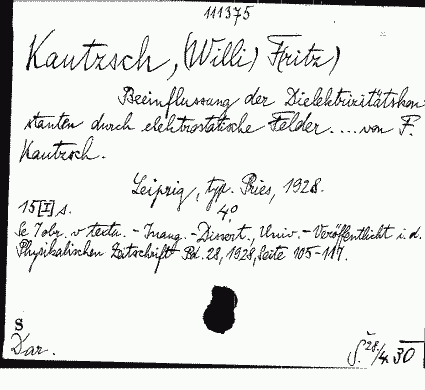 111375
Kautzsch, (Willi) Fritz)
Beeinflussung der Dielektrizitätskon-
stanten durch elektrostatische Felder .... von F.
Kautzsch.
Leipzig, typ. Pries, 1928.
15 [I] s. 4°.
Se 7 obr. v textu. - Inaug.-Dissert., Univ. - Veröffentlicht i. d.
Physikalischen Zeitschrift Bd. 28, 1928, Seite 105-117.
S
Dar.
Š. 28/4. 30